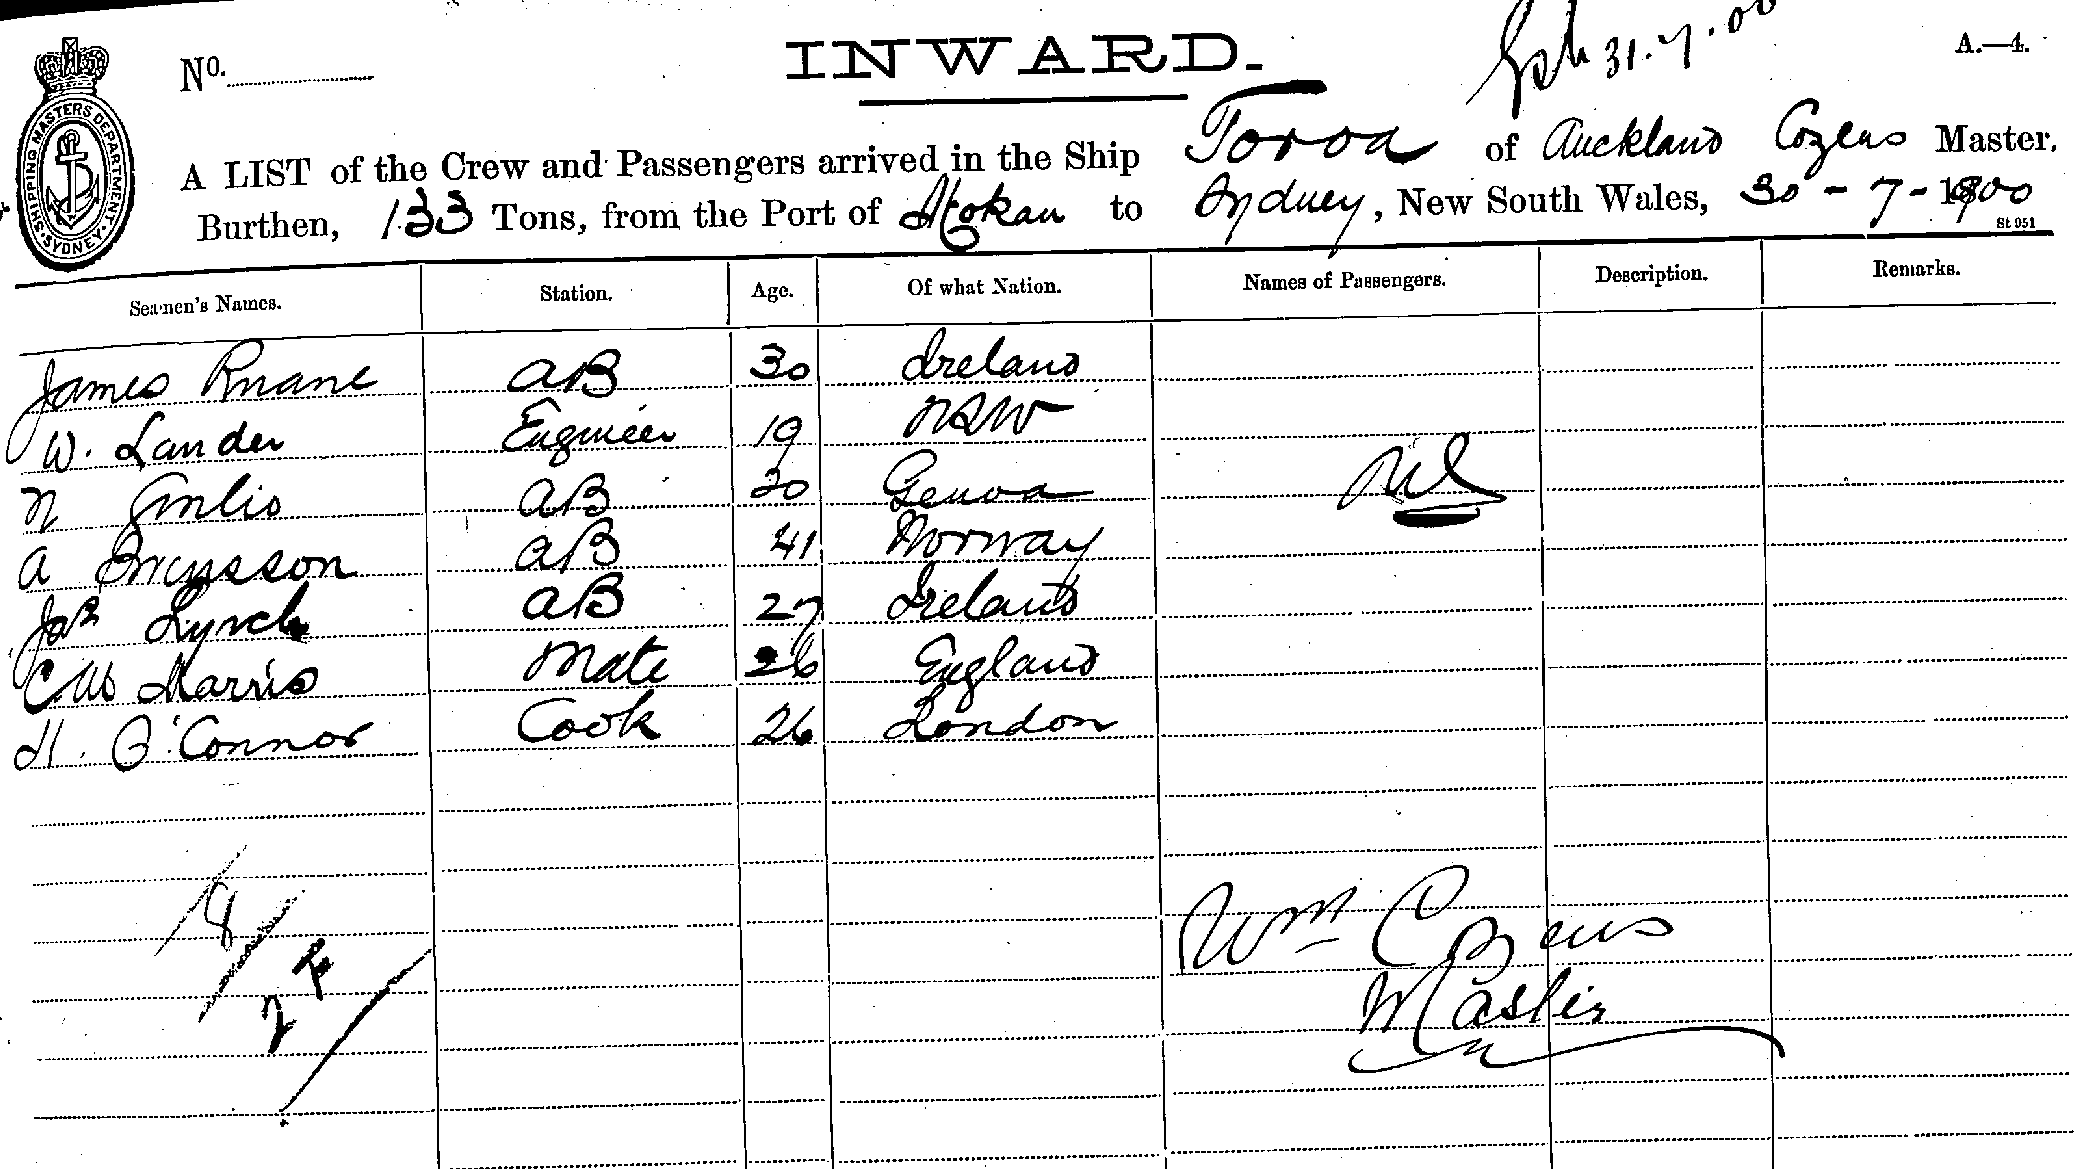 INWARD.
No.
31.7.00
A.—4.
SHIPPING MASTERS DEPARTMENT
SYDNEY
A LIST of the Crew and Passengers arrived in the Ship Toroa of Auckland Cozens Master,
Burthen, 133 Tons, from the Port of to Sydney, New South Wales, 30-7-1900
St 951
Seamen's Names. Station. Age. Of what Nation. Names of Passengers. Description. Remarks.
James Ruane AB 30 Ireland
W. Lander Engineer 19 NSW
N AB 30 Genoa Nil
A AB 41 Norway
Jas Lynch AB 27 Ireland
C W Harris Mate 26 England
H. O'Connor Cook 26 London
Wm Cozens
Master